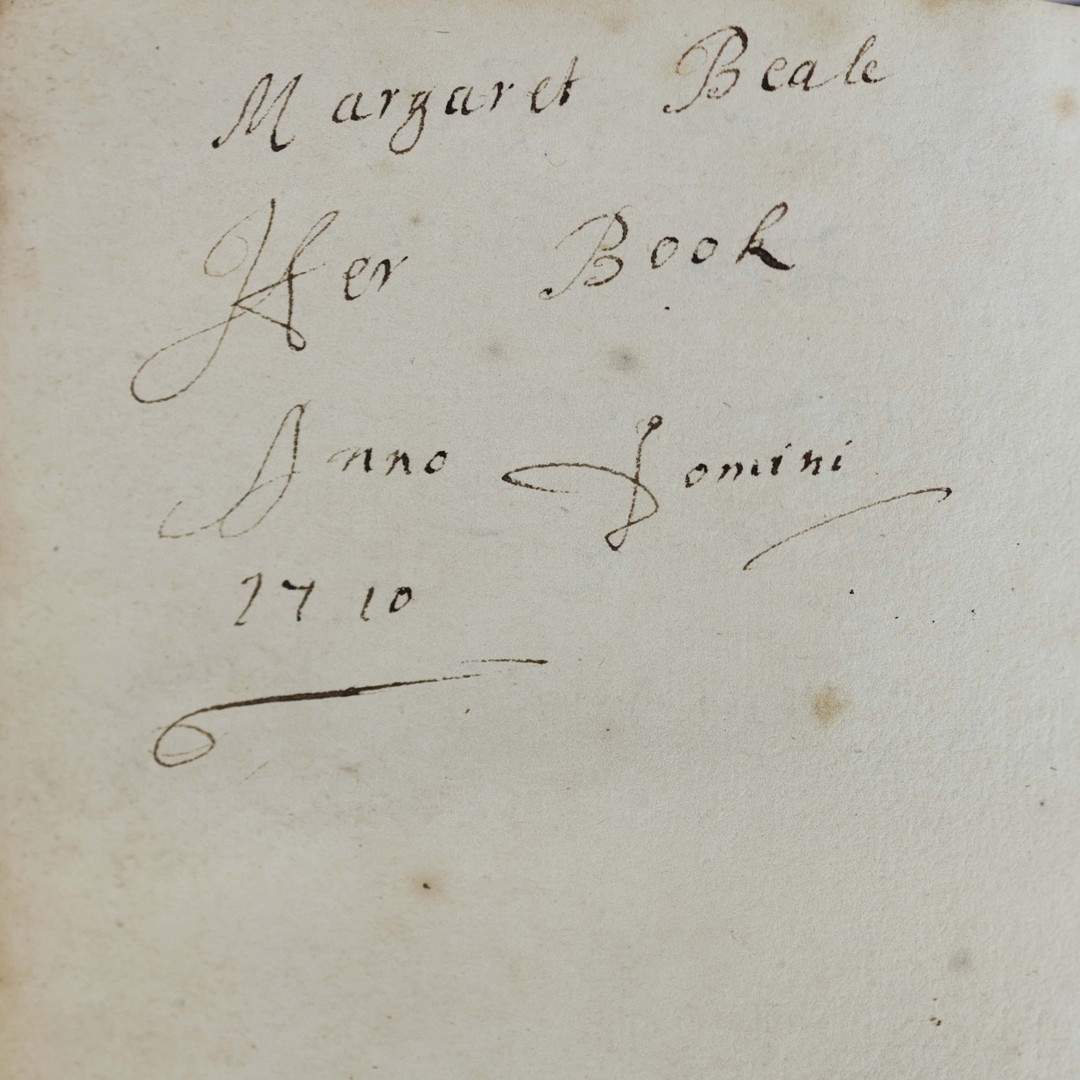 Margaret Beale
Her Book
Anno Domini
1710